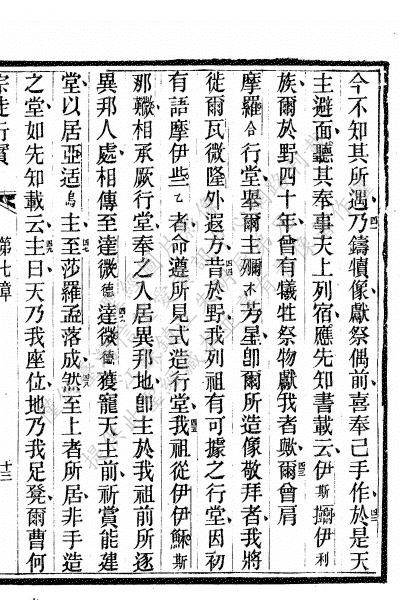 今不知其所遇乃鑄犢像獻祭偶前喜奉己手作於是天
主避面聽其奉事天上列宿應先知書載云伊斯[...]伊利
族爾於野四十年曾有犧牲祭物獻我者歟爾曾肩
摩羅合行堂曁爾主[...]木芳星卽爾所造像敬拜者我將
徙爾瓦微隆外遐方昔於野我列祖有可據之行堂因初
有語摩伊些乙者命遵所見式造行堂我祖從伊伊穌斯
那[...]相承厥行堂奉之入居異邦地卽主於我祖前所逐
異邦人處相傳至達微德達微德獲寵天主前祈賞能建
堂以居亞适烏主至莎羅孟落成然至上者所居非手造
之堂如先知載云主曰天乃我座位地乃我足凳爾曹何
宗徒行實
第七章
十三